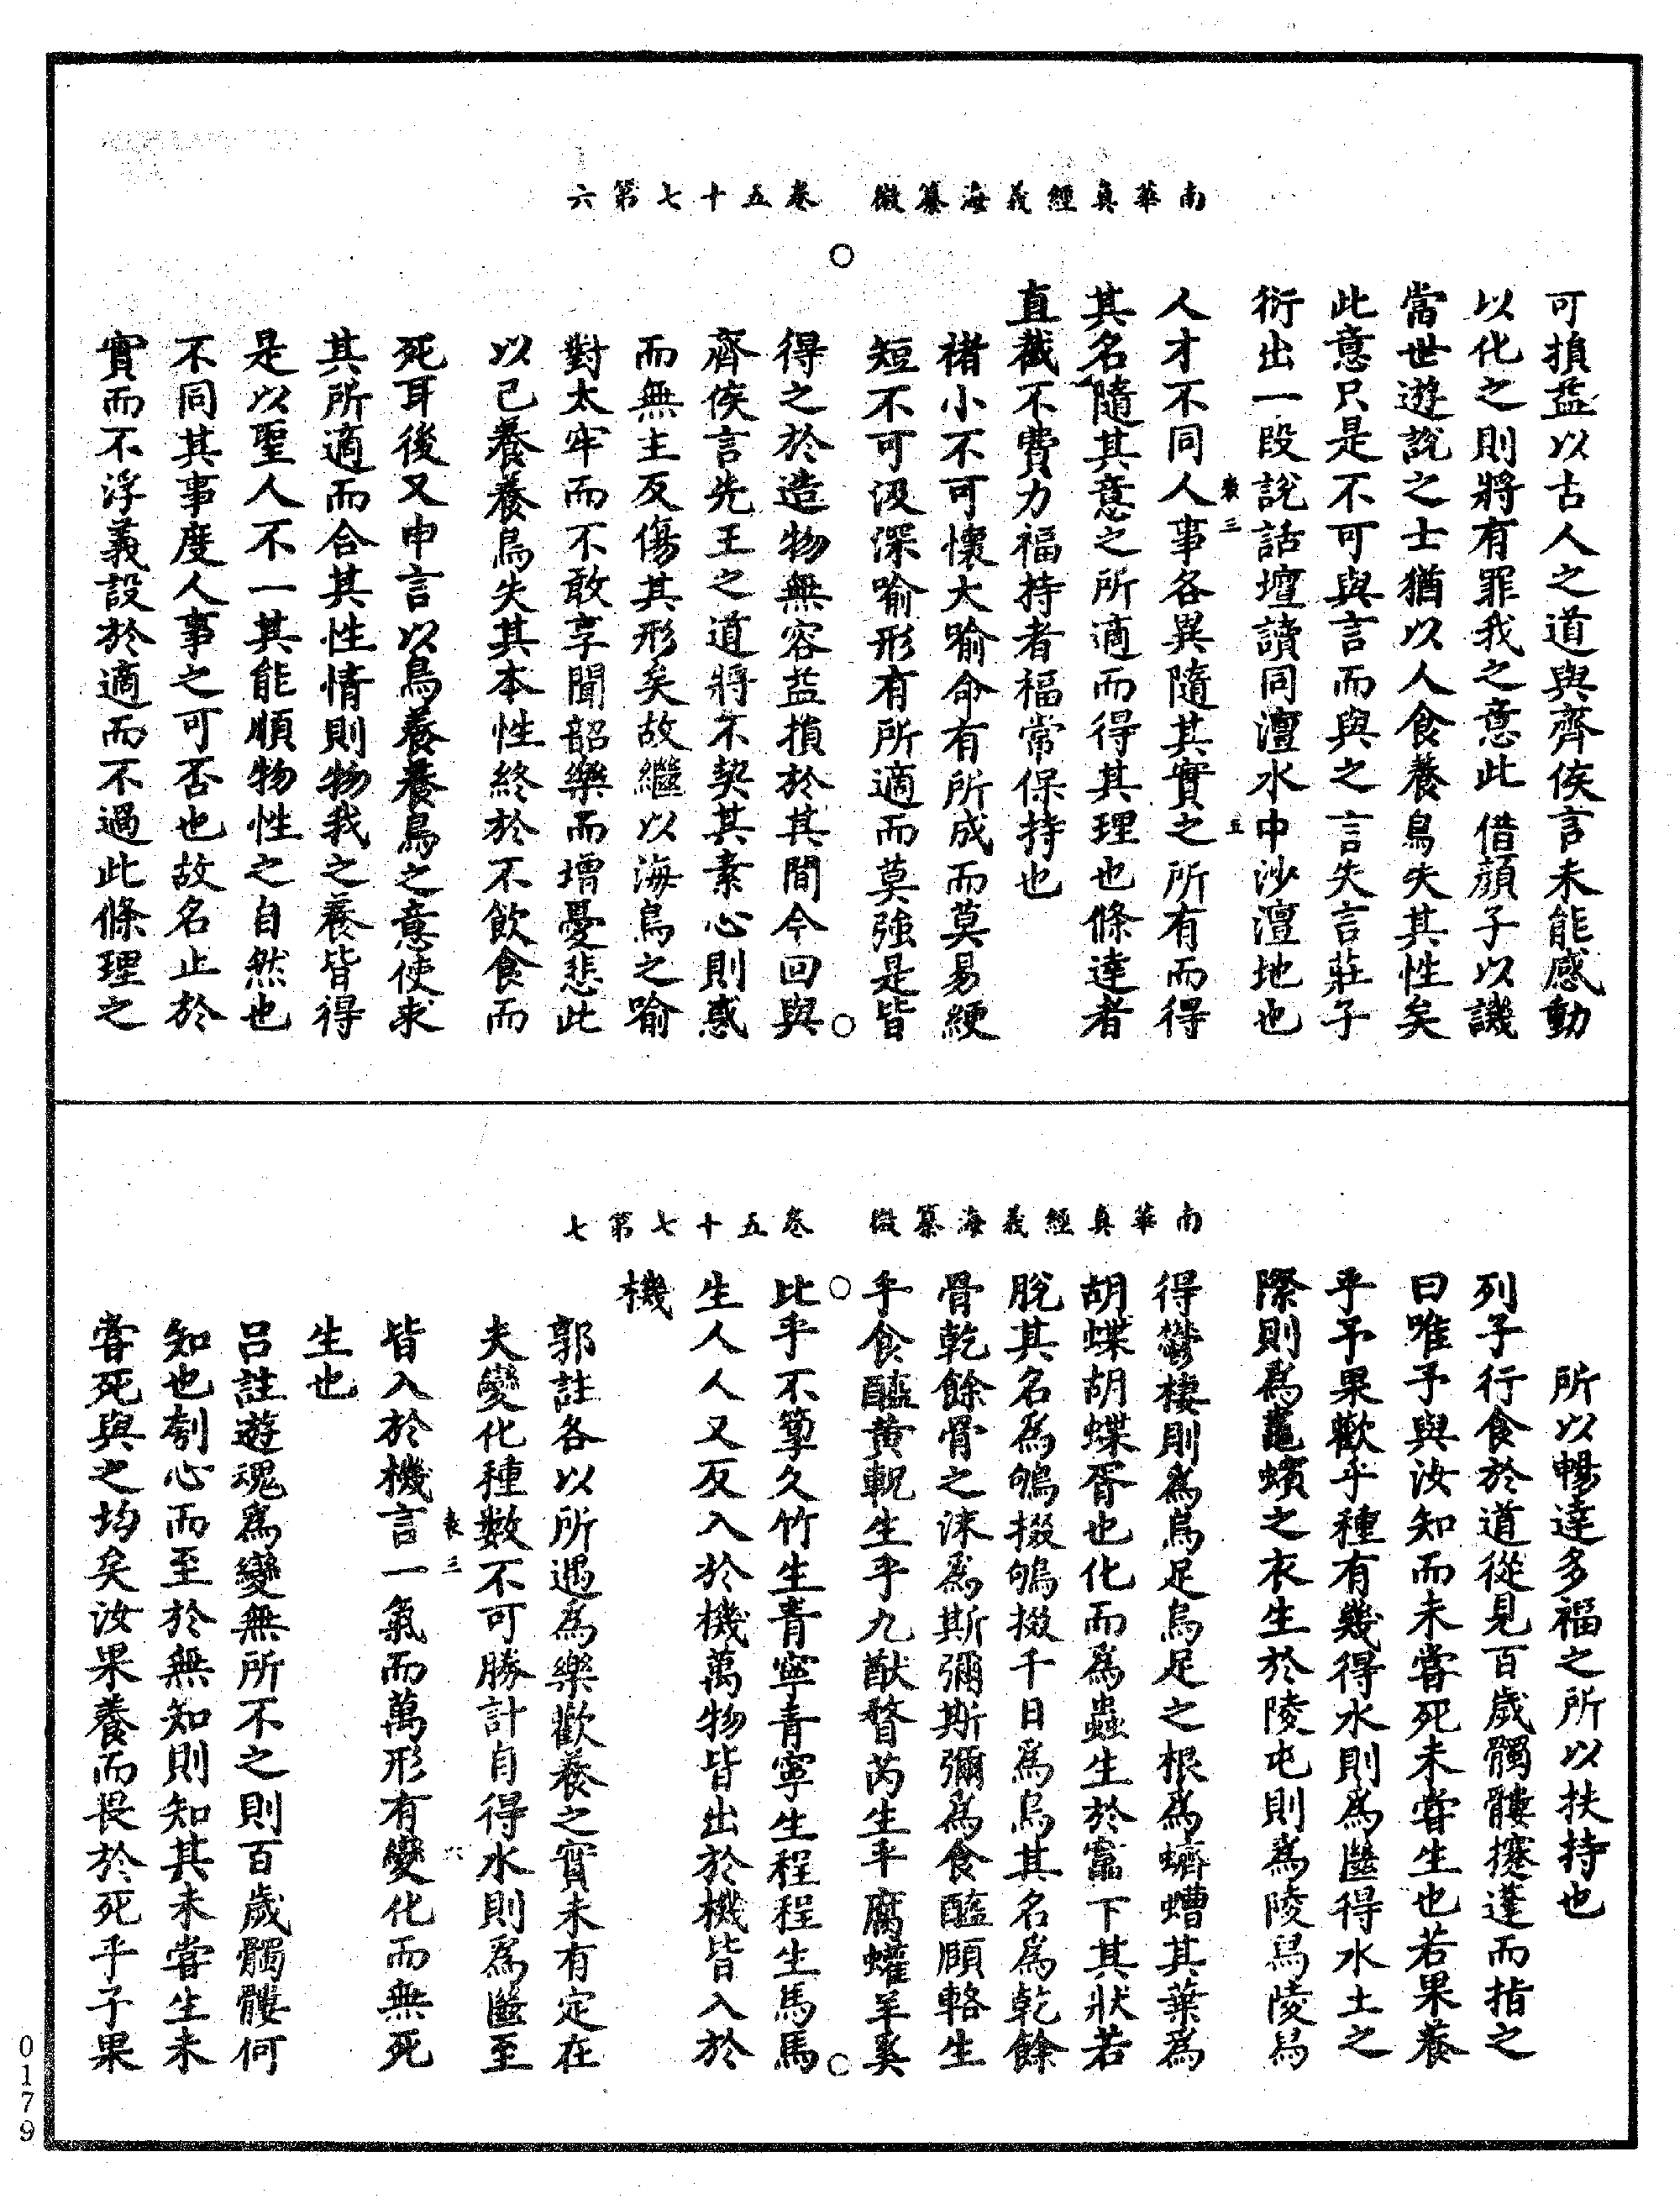 南華真經義海纂微　卷五十七第六
可損益以古人之道與齊侯言未能感動
以化之則將有罪我之意此借顏子以譏
當世遊說之士猶以人食養鳥失其性矣
此意只是不可與言而與之言失言莊子
衍出一段說話壇讀同澶水中沙澶地也
表三　五
人才不同人事各異隨其實之所有而得
其名隨其意之所適而得其理也條達者
直截不費力福持者福常保持也
褚小不可懷大喻命有所成而莫易綆
短不可汲深喻形有所適而莫強是皆
得之於造物無容益損於其間今回與
齊侯言先王之道將不契其素心則惑
而無主反傷其形矣故繼以海鳥之喻
對太牢而不敢享聞韶樂而增憂悲此
以己養養鳥失其本性終於不飲食而
死耳後又申言以鳥養養鳥之意使求
其所適而合其性情則物我之養皆得
是以聖人不一其能順物性之自然也
不同其事度人事之可否也故名止於
實而不浮義設於適而不過此條理之
南華真經義海纂微　卷五十七第七
所以暢達多福之所以扶持也
列子行食於道從見百歲髑髏攓蓬而指之
曰唯予與汝知而未嘗死未嘗生也若果養
乎予果歡乎種有幾得水則為㡭得水土之
際則為鼃蠙之衣生於陵屯則為陵舄陵舄
得鬱棲則為烏足烏足之根為蠐螬其葉為
胡蝶胡蝶胥也化而為蟲生於竈下其狀若
脫其名為鴝掇鴝掇千日為鳥其名為乾餘
骨乾餘骨之沫為斯彌斯彌為食醯頤輅生
乎食醯黃軦生乎九猷瞀芮生乎腐蠸羊奚
比乎不箰久竹生青寧青寧生程程生馬馬
生人人又反入於機萬物皆出於機皆入於
機
郭註各以所遇為樂歡養之實未有定在
夫變化種數不可勝計自得水則為㡭至
表三　六
皆入於機言一氣而萬形有變化而無死
生也
呂註遊魂為變無所不之則百歲髑髏何
知也刳心而至於無知則知其未嘗生未
嘗死與之均矣汝果養而畏於死乎子果
0179